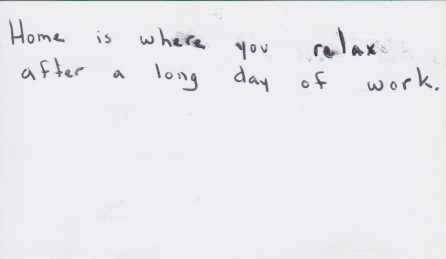 Home is where you relax
after a long day of work.